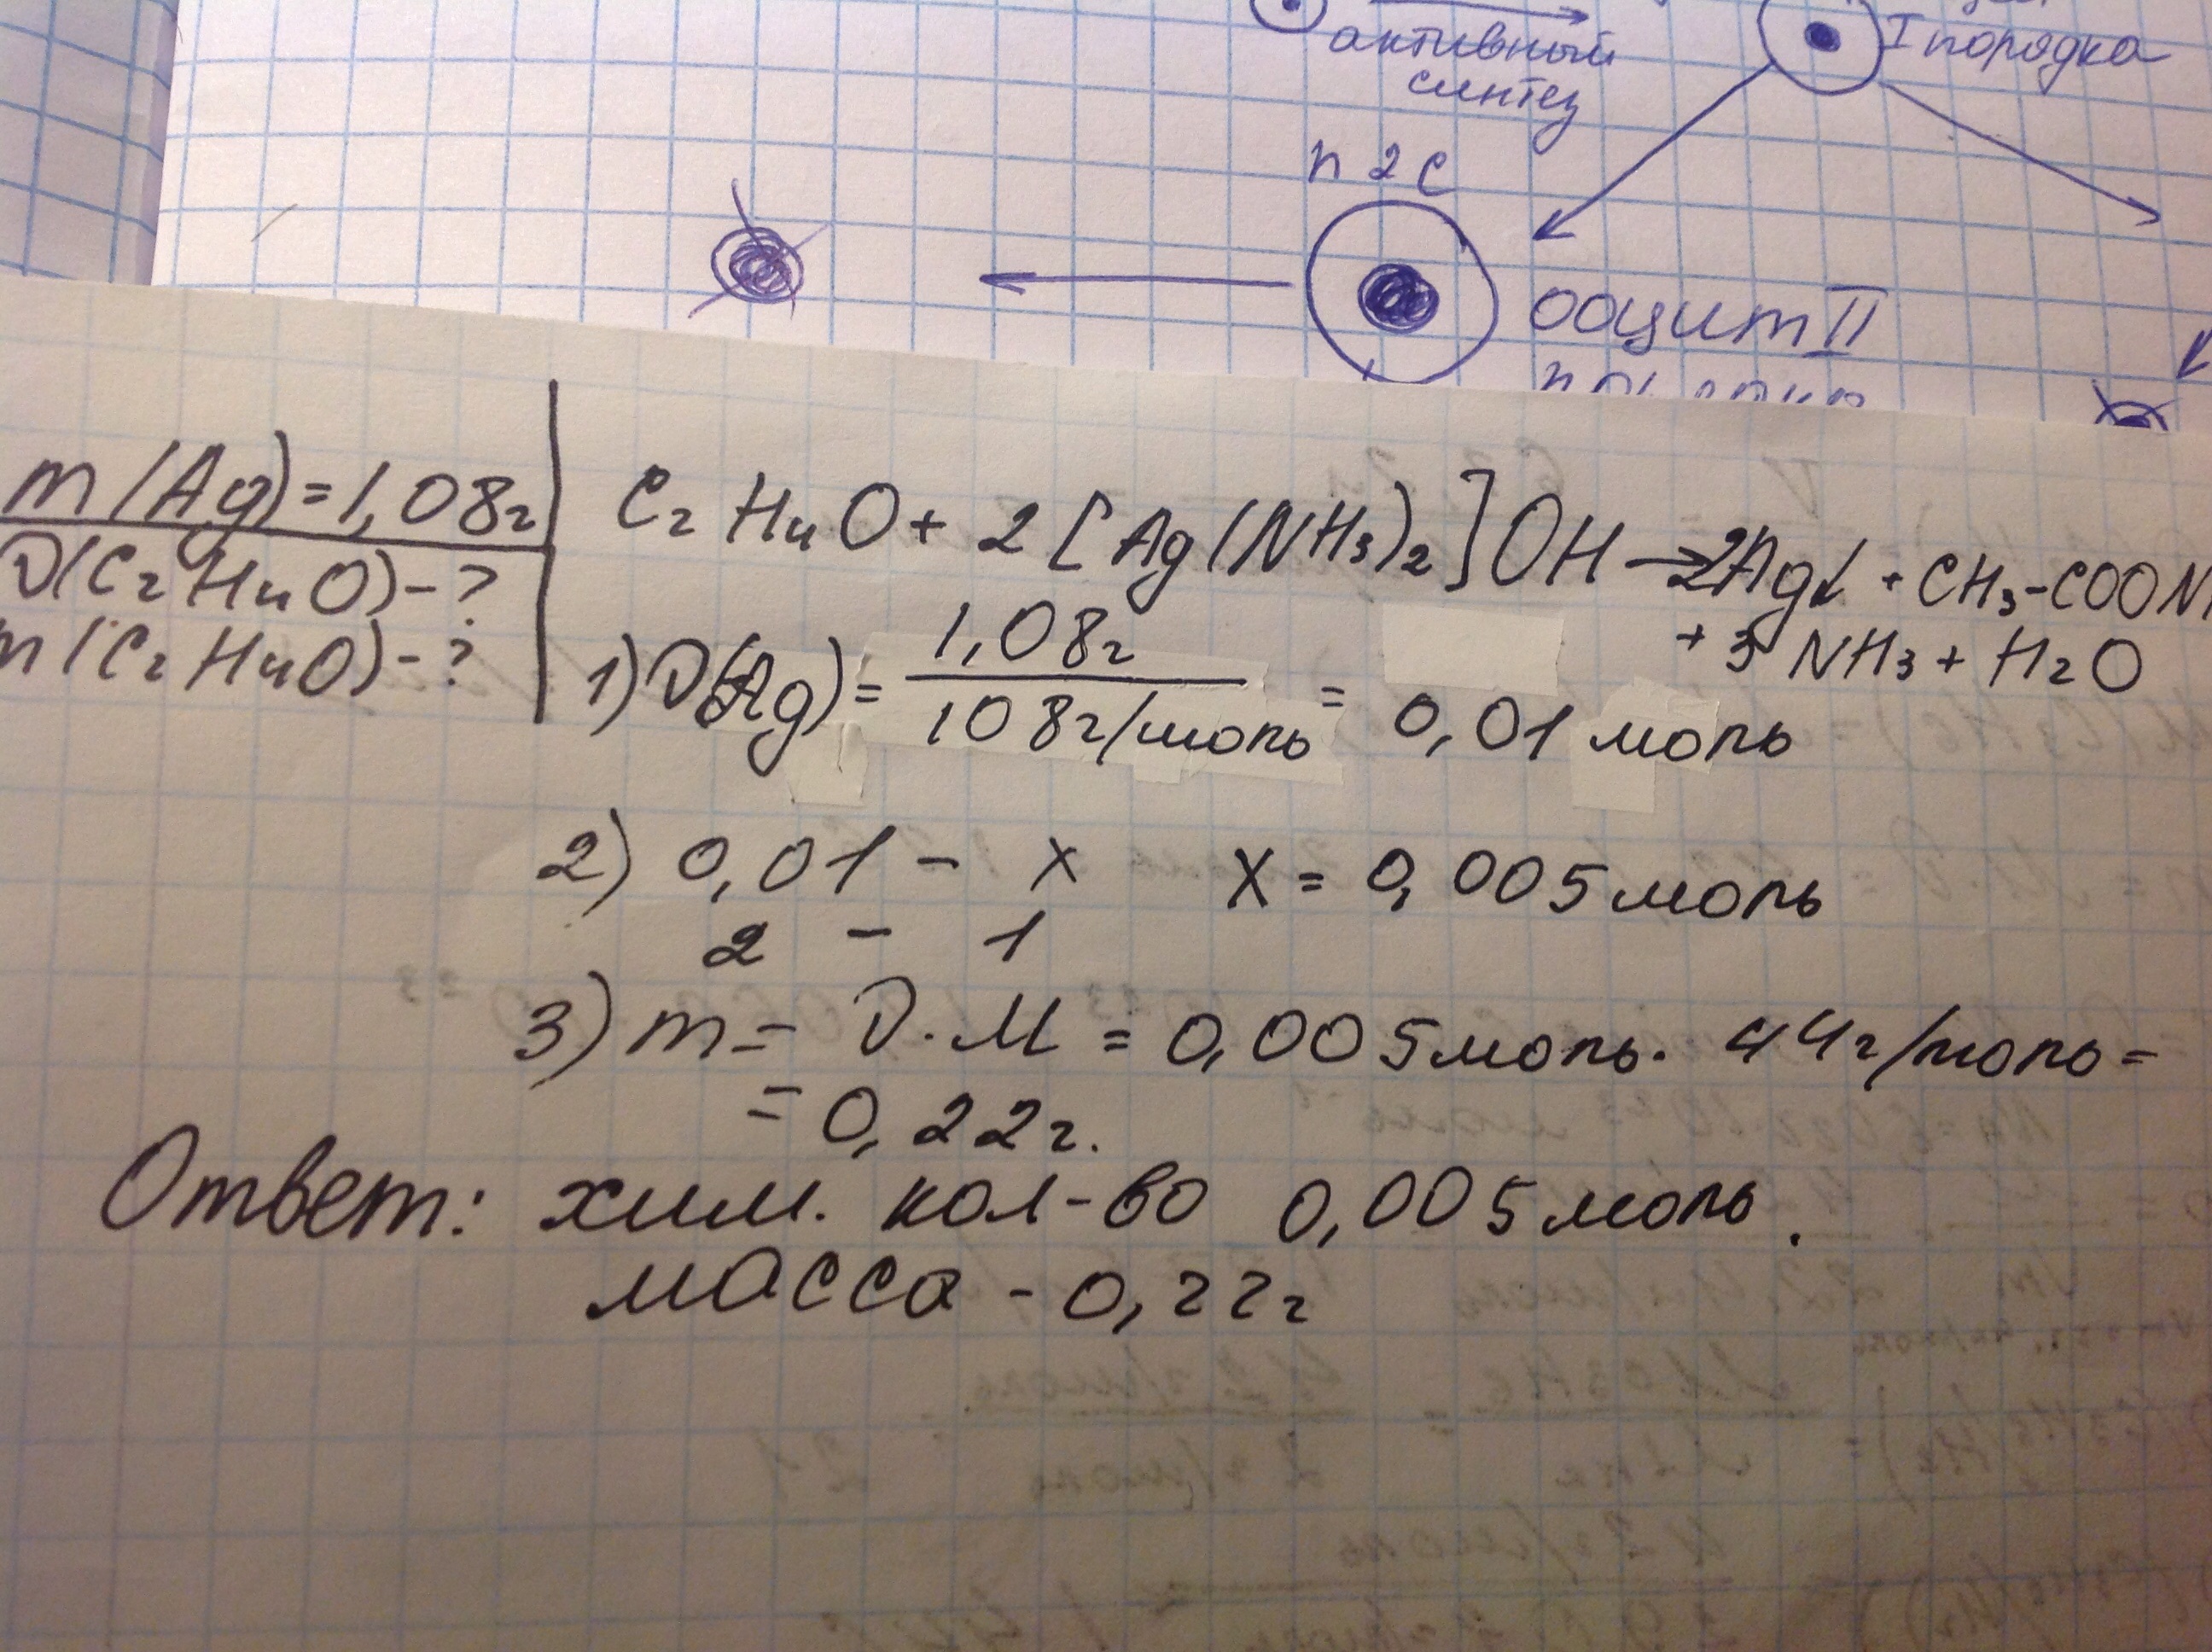 активный
синтез
I порядка
n 2 c
ооцит II
m(Ag)=1,08г
ν(C₂H₄O)-?
m(C₂H₄O)-?
C₂H₄O + 2[Ag(NH₃)₂]OH → 2Ag↓ + CH₃-COON
+ 3NH₃ + H₂O
1) ν(Ag) = 1,08г / 108г/моль = 0,01 моль
2) 0,01 - x x = 0,005 моль
2 - 1
3) m = ν · M = 0,005 моль · 44г/моль =
= 0,22г.
Ответ: хим. кол-во 0,005 моль.
масса - 0,22г